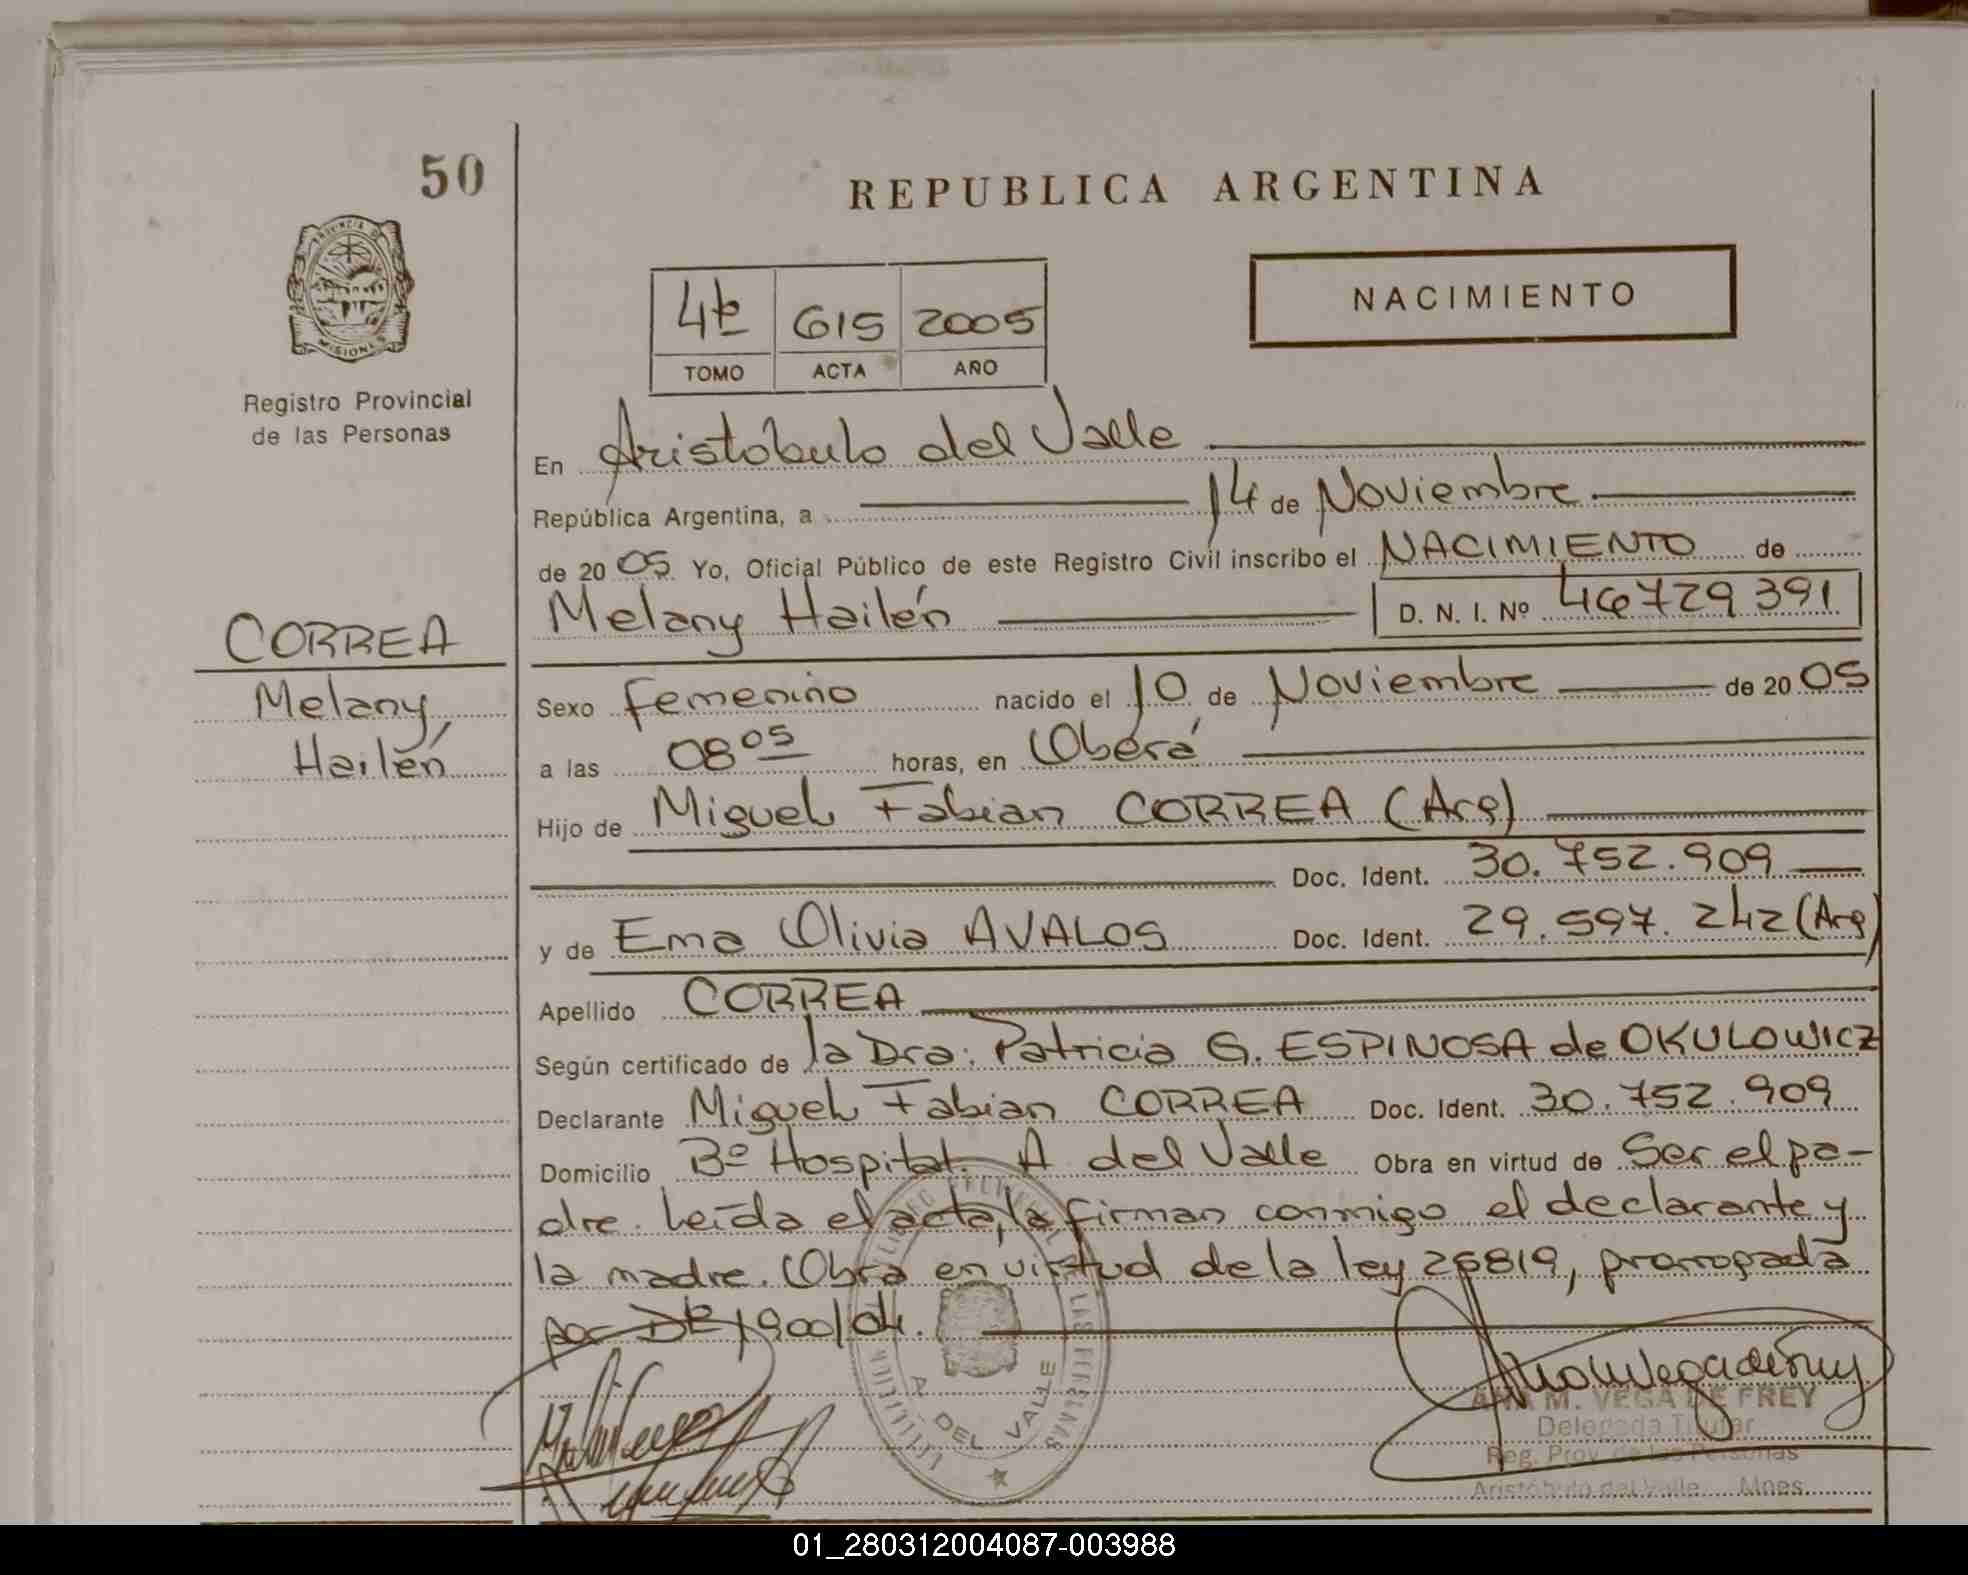 50
REPUBLICA ARGENTINA
PROVINCIA DE
MISIONES
Registro Provincial
de las Personas
NACIMIENTO
4to 615 2005
TOMO ACTA AÑO
En Aristobulo del Valle
República Argentina, a 14 de Noviembre
de 2005 Yo, Oficial Público de este Registro Civil inscribo el NACIMIENTO de
Melany Hailén D. N. I. Nº 46729391
CORREA
Melany,
Hailén
Sexo femenino nacido el 10 de Noviembre de 2005
a las 08 05 horas, en Oberá
Hijo de Miguel Fabian CORREA (Arg)
Doc. Ident. 30.752.909
y de Ema Olivia AVALOS Doc. Ident. 29.597.242 (Arg
Apellido CORREA
Según certificado de la Dra. Patricia G. ESPINOSA de OKULOWICZ
Declarante Miguel Fabian CORREA Doc. Ident. 30.752.909
Domicilio Bº Hospital. A del Valle Obra en virtud de Ser el pa-
dre. Leída el acta, la firman conmigo el declarante y
la madre. Obra en virtud de la ley 25819, prorrogada
por 1900/04.
A DEL VALLE
ANA M. VEGA DE FREY
Delegada Titular
Reg. Prov. de las Personas
Aristóbulo del Valle Mnes.
01_280312004087-003988